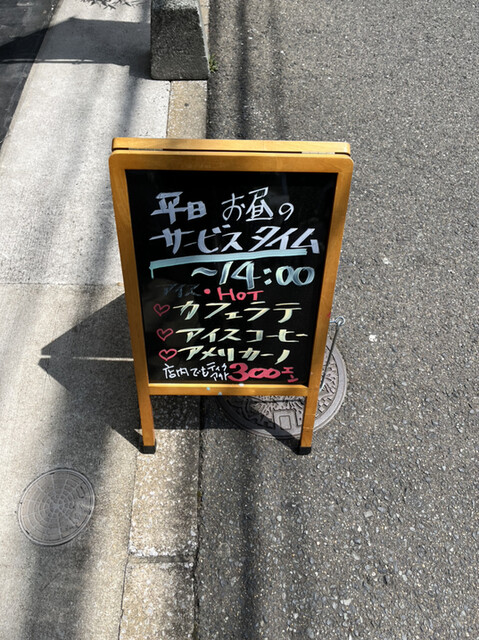 平日 お昼の
サービスタイム
～14:00
アイス・HOT
♡カフェラテ
♡アイスコーヒー
♡アメリカーノ
店内でもテイクアウト300エン